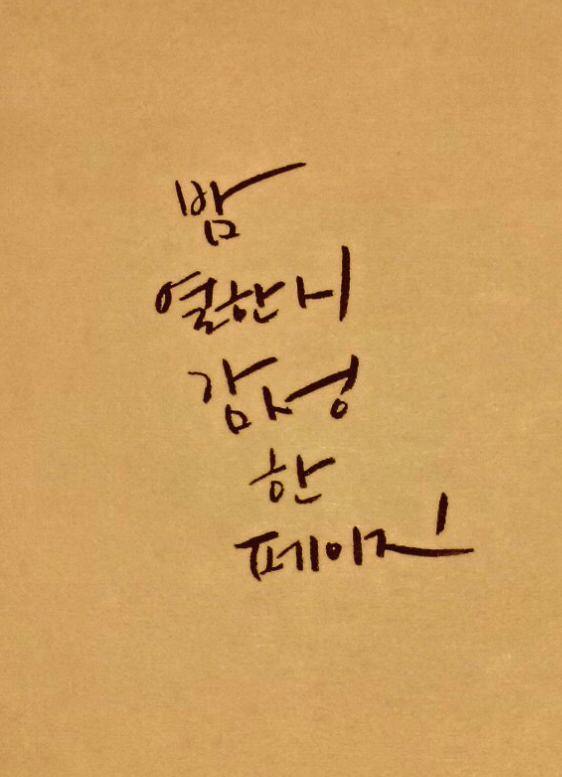 밤
열한시
감성
한
페이지